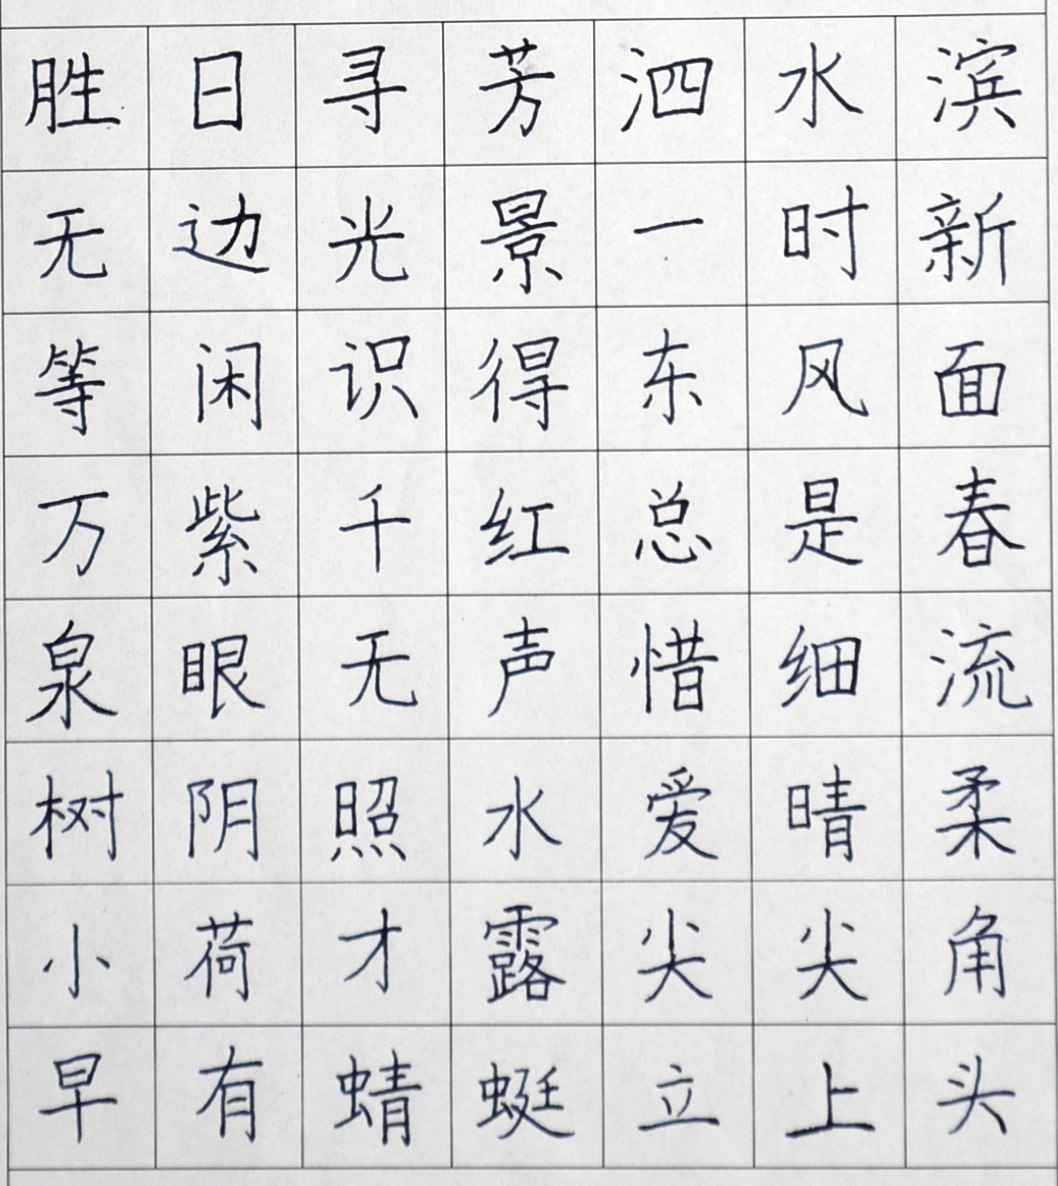 胜日寻芳泗水滨
无边光景一时新
等闲识得东风面
万紫千红总是春
泉眼无声惜细流
树阴照水爱晴柔
小荷才露尖尖角
早有蜻蜓立上头